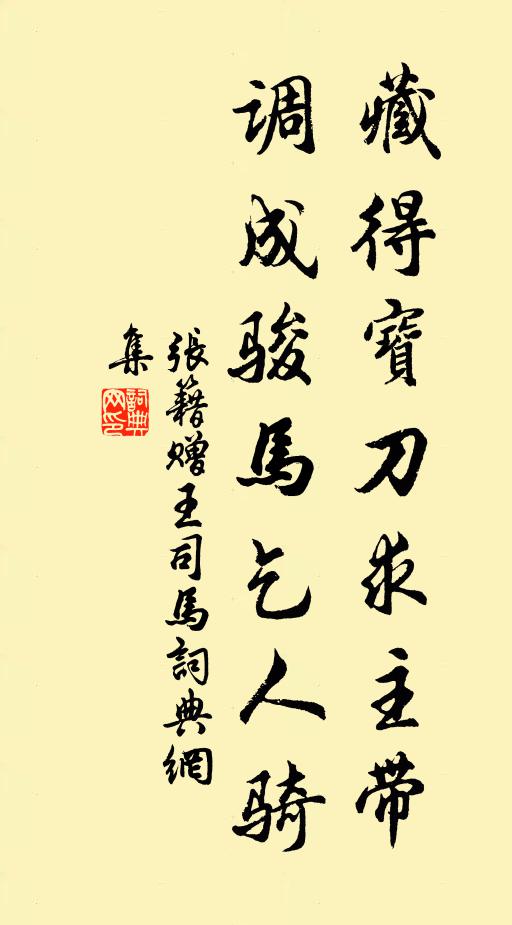 藏得寶刀求主带
调成骏馬乞人骑
張籍赠王司馬詞典網
集
詞典网印